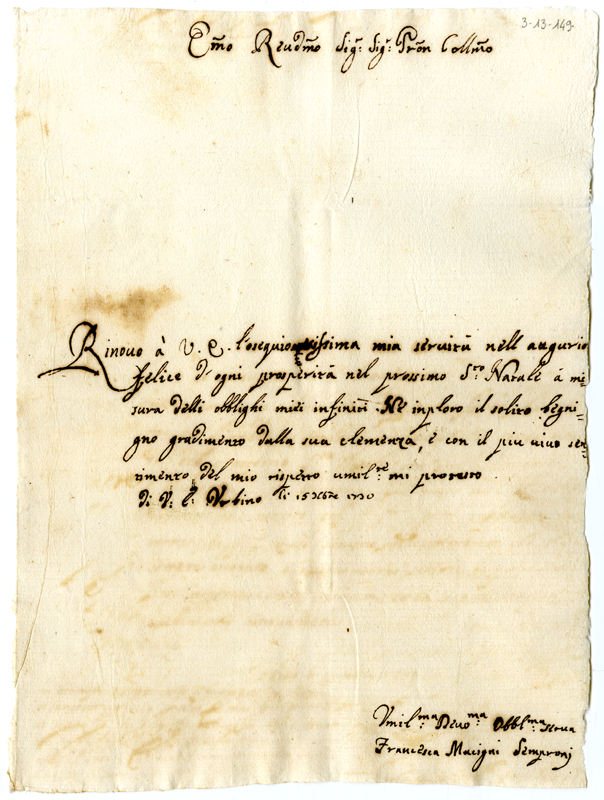 3-13-149
Em̃o Reudm̃o Sig.r Sig.r Pron̄ Collm̃o
Rinouo à V. E. l'osequiosissima mia seruitù nell augurio
felice d'ogni prosperità nel prossimo S.to Natale à mi
sura delli obblighi miei infiniti. Ne inploro il solito begni=
gno gradimento dalla sua clemenza, e con il piu viuo sen=
timento del mio rispetto umil.te mi protesto
di V. E. Vrbino li 15 Xbre 1730
Vmil.ma Deuo.ma Obbl.ma serua
Francesca Macigni Semproni